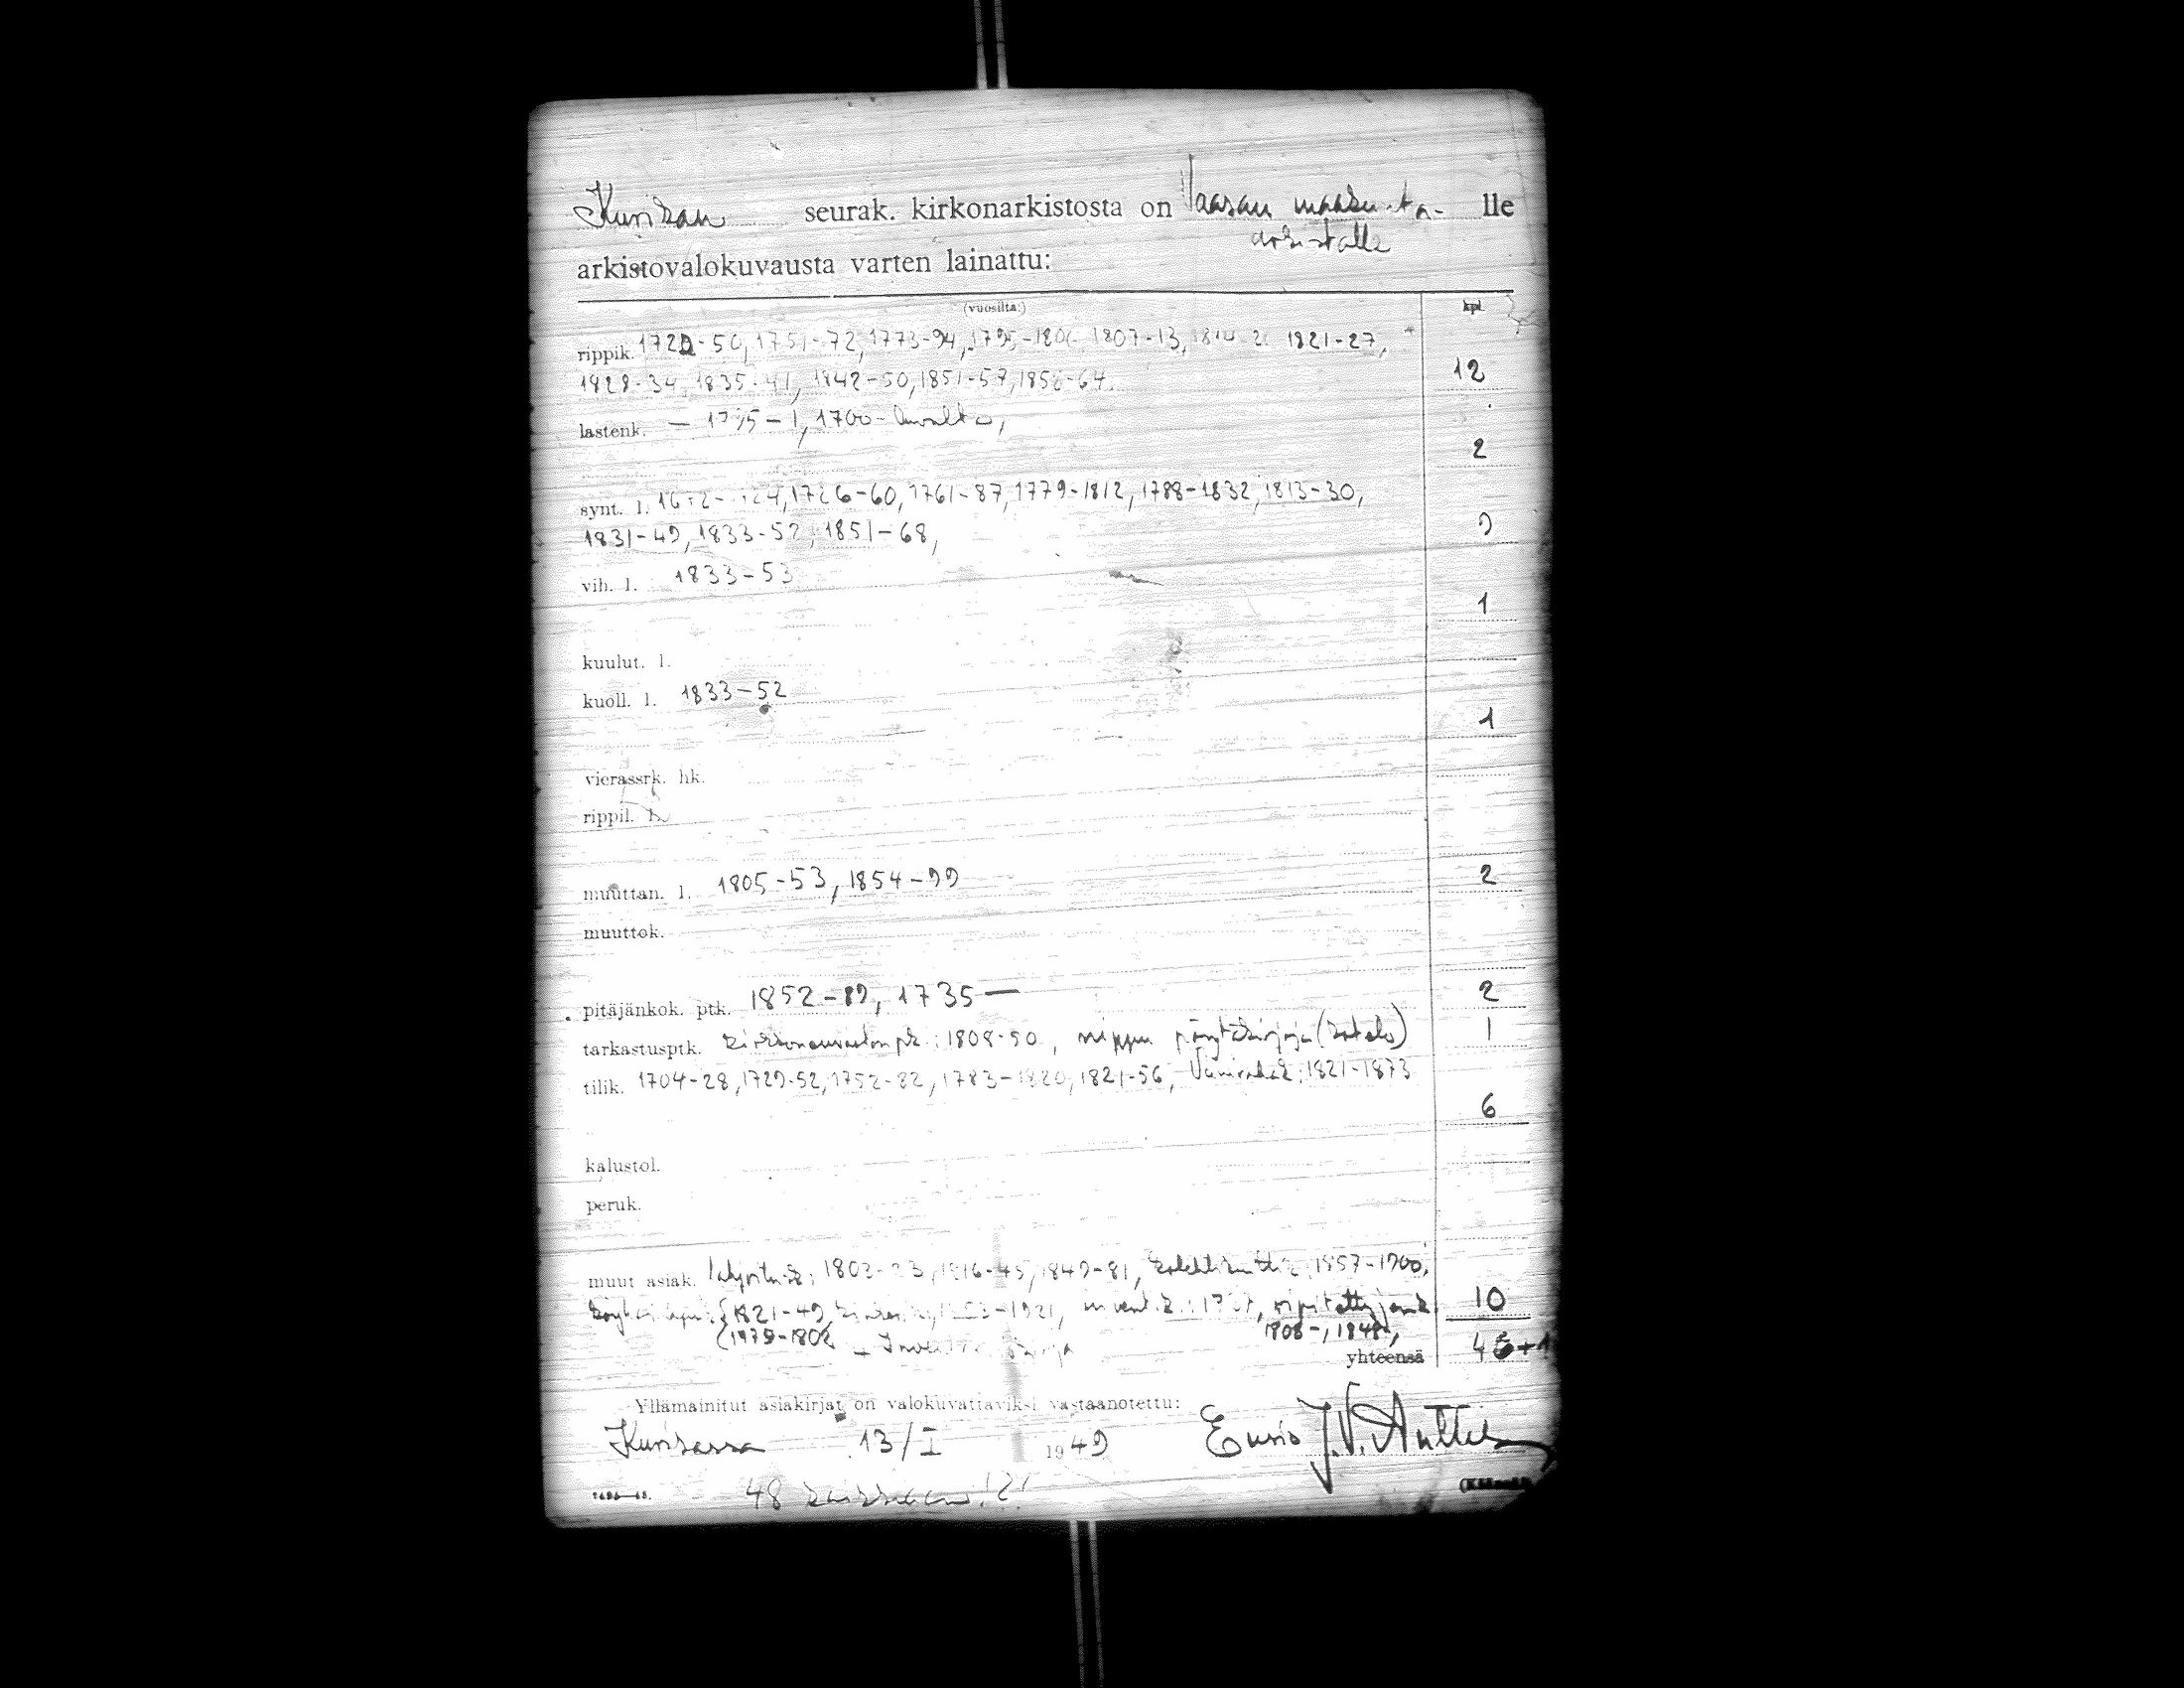 Kurikan seurak. kirkonarkistosta on Vaasan maakunta- lle
arkistolle
arkistovalokuvausta varten lainattu:
(vuosilta:) kpl.
rippik. 1722-50, 1751-72, 1773-94, 1795-1806 1807-13, 1821-27,
1828-34, 1835-41, 1842-50, 1851-57, 1858-64. 12
lastenk. — 1700-luvulta, 2
synt. l. 1726-60, 1761-87, 1779-1812, 1788-1832, 1813-30,
1831-49, 1833-52, 1851-68, 9
vih. l. 1833-53 1
kuulut. l.
kuoll. l. 1833-52 1
vierassrk. hk.
rippil. l.
muuttan. l. 1805-53, 1854-99 2
muuttok.
pitäjänkok. ptk. 1852-89, 1735— 2
tarkastusptk. kirkonneuvoston pk: 1808-50, nippu pöytäkirjoja (kotelo) 1
tilik. 1704-28, 1729-52, 1752-82, 1783-1820, 1821-56, Viinirahak: 1821-1873 6
kalustol.
peruk.
muut asiak. 1816-45, 1849-81, 1857-1900,
1821-49, 10
1808-, 1848,
yhteensä
Yllämainitut asiakirjat on valokuvattaviksi vastaanotettu:
Kurikassa 13/I 1949 Ensio J.V. Anttila
48 kaikkiaan!